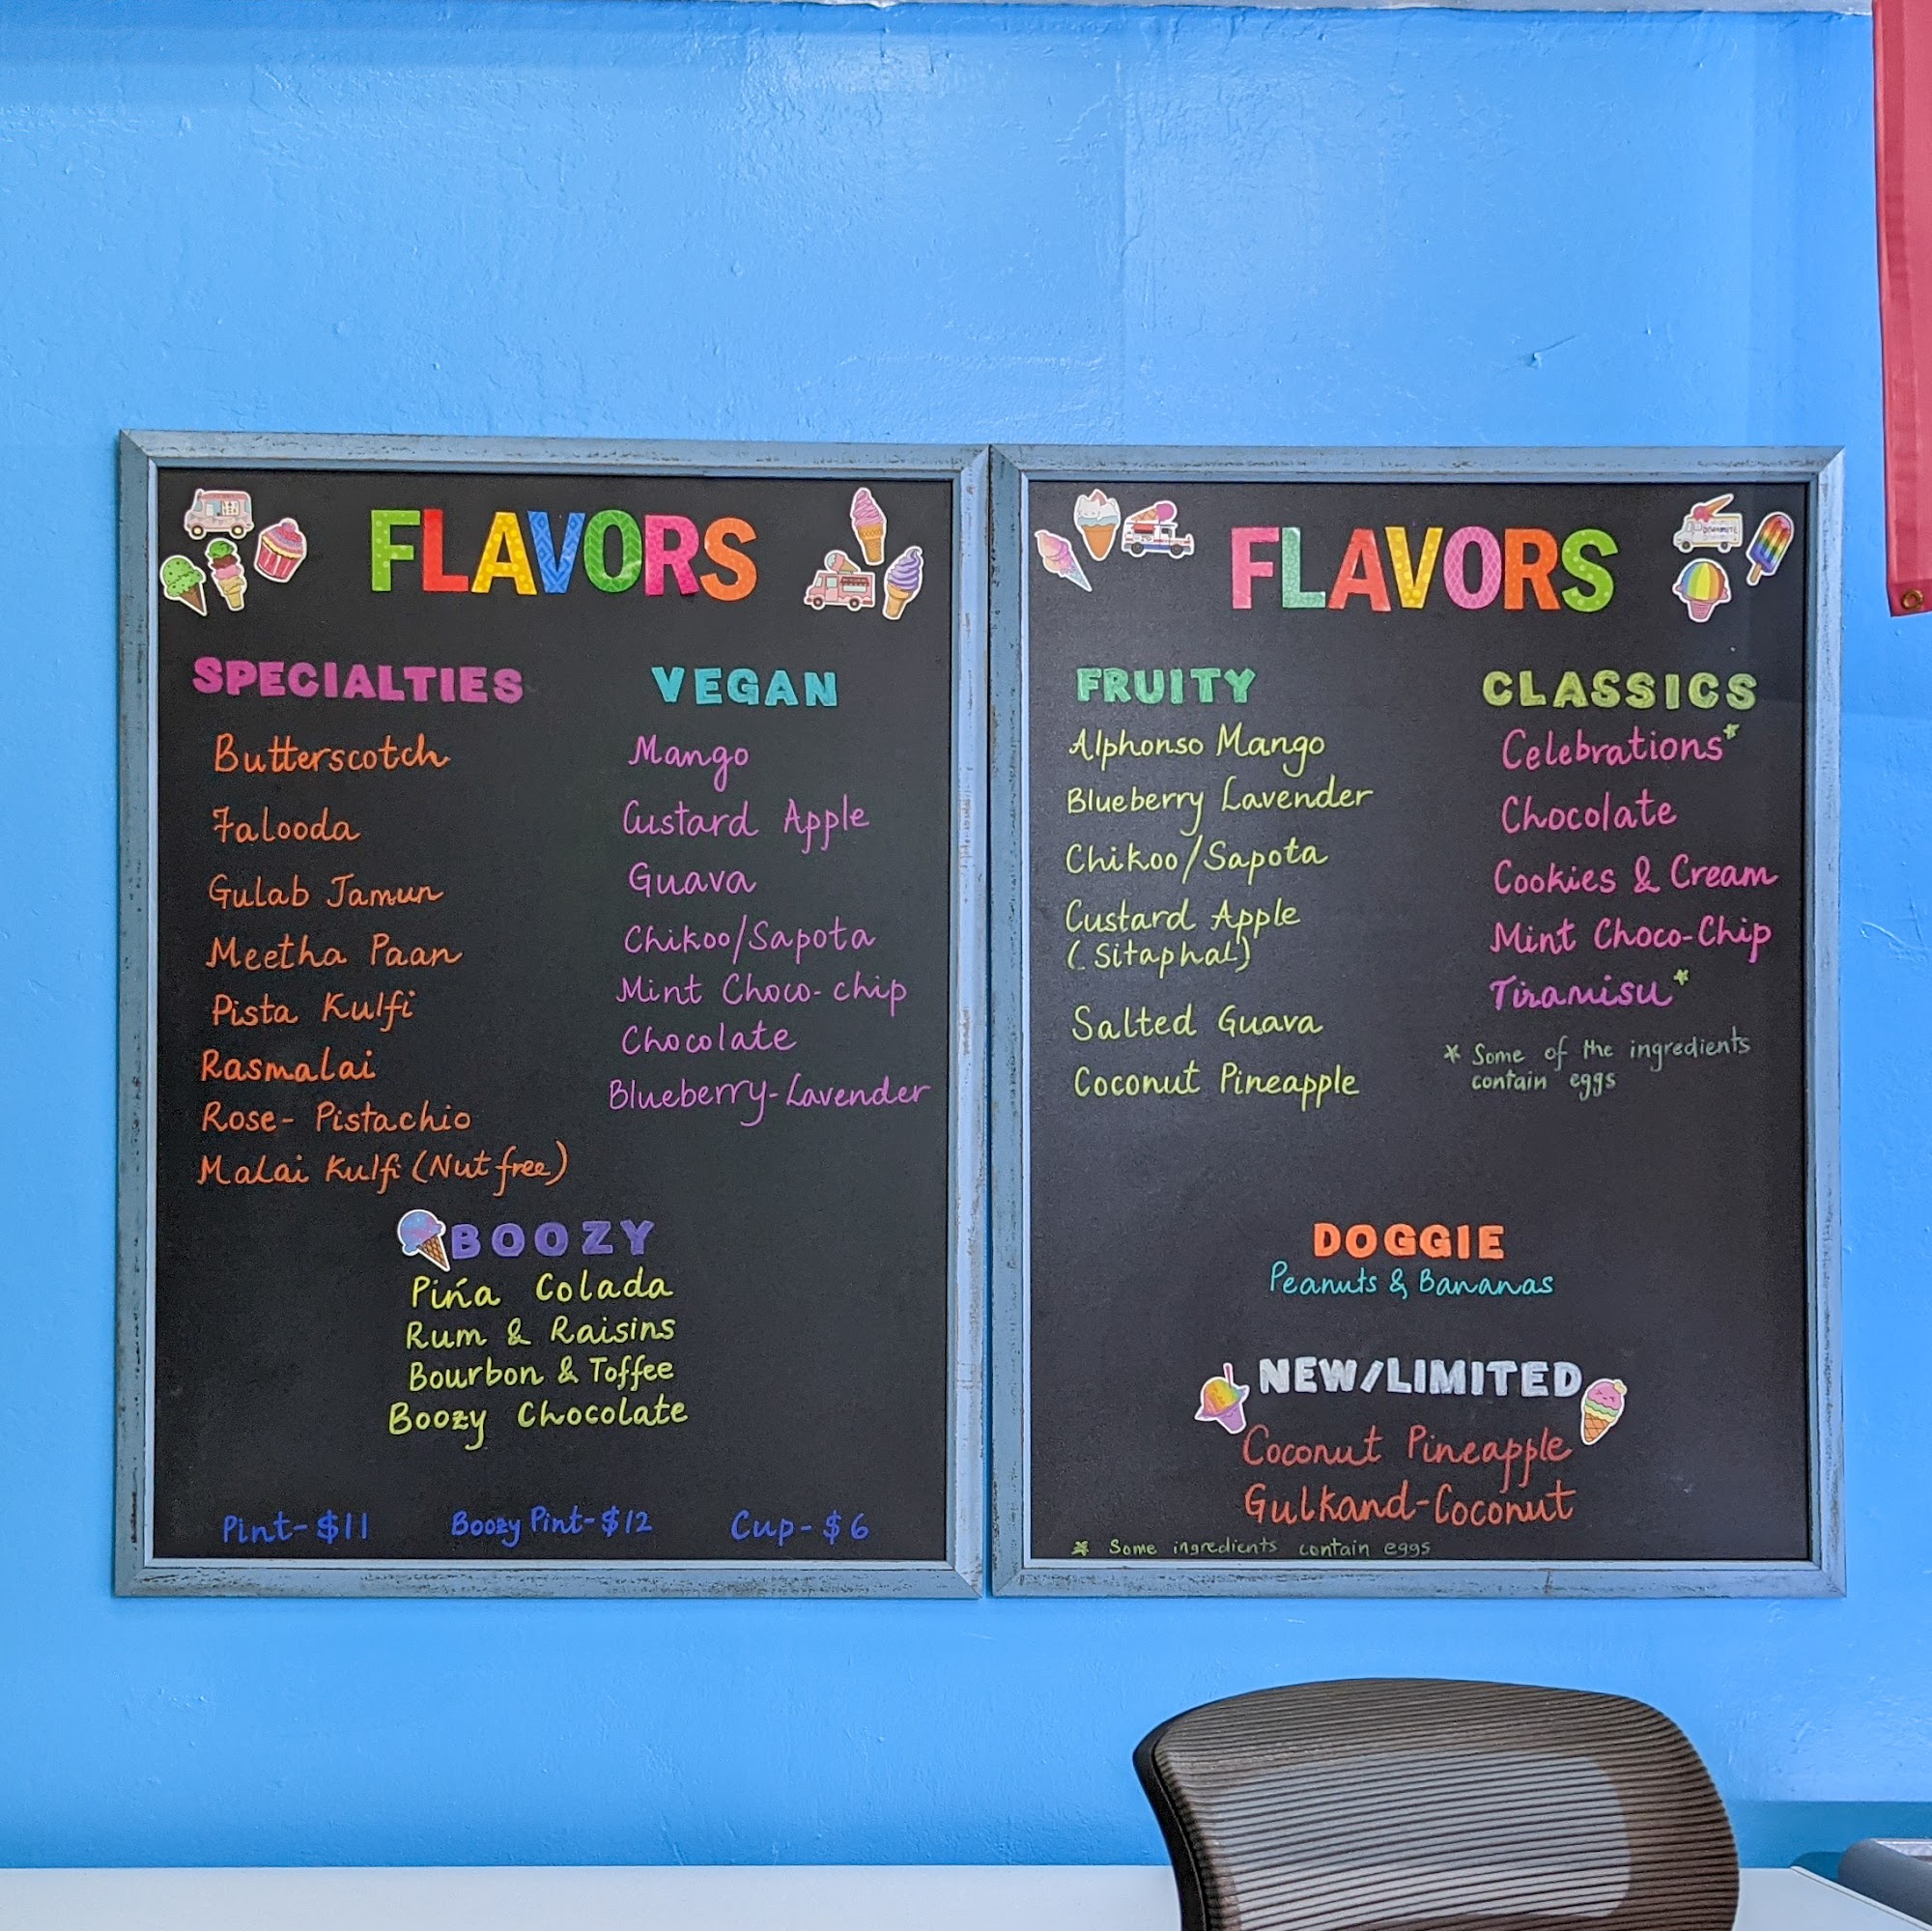 FLAVORS
SPECIALTIES
Butterscotch
Falooda
Gulab Jamun
Meetha Paan
Pista Kulfi
Rasmalai
Rose-Pistachio
Malai Kulfi (Nut free)
VEGAN
Mango
Custard Apple
Guava
Chikoo/Sapota
Mint Choco-chip
Chocolate
Blueberry-Lavender
BOOZY
Pińa Colada
Rum & Raisins
Bourbon & Toffee
Boozy Chocolate
Pint-$11 Boozy Pint-$12 Cup-$6
FLAVORS
FRUITY
Alphonso Mango
Blueberry Lavender
Chikoo/Sapota
Custard Apple
(Sitaphal)
Salted Guava
Coconut Pineapple
CLASSICS
Celebrations*
Chocolate
Cookies & Cream
Mint Choco-Chip
Tiramisu*
* Some of the ingredients
contain eggs
DOGGIE
Peanuts & Bananas
NEW/LIMITED
Coconut Pineapple
Gulkand-Coconut
* Some ingredients contain eggs